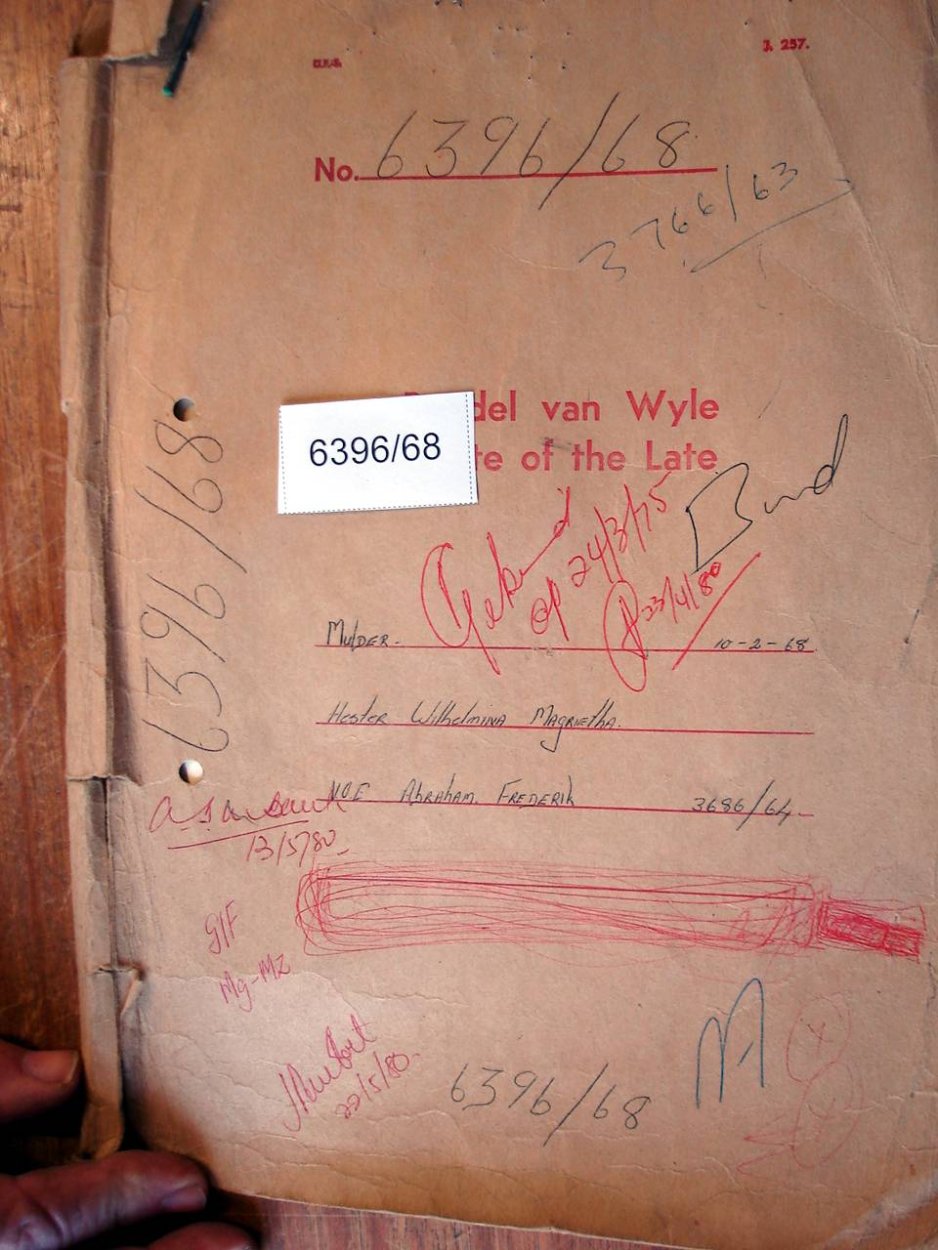 J. 257.
No. 6396/68
3766/63
del van Wyle
6396/68
te of the Late
6396/68
Gekeurd
op 24/3/75
23/4/80
Mulder. 10-2-68
Hester Wilhelmina Magrietha.
NOE Abraham Frederik 3686/64
13/5/80
GIF
Mg-Mz
22/5/80
6396/68
M